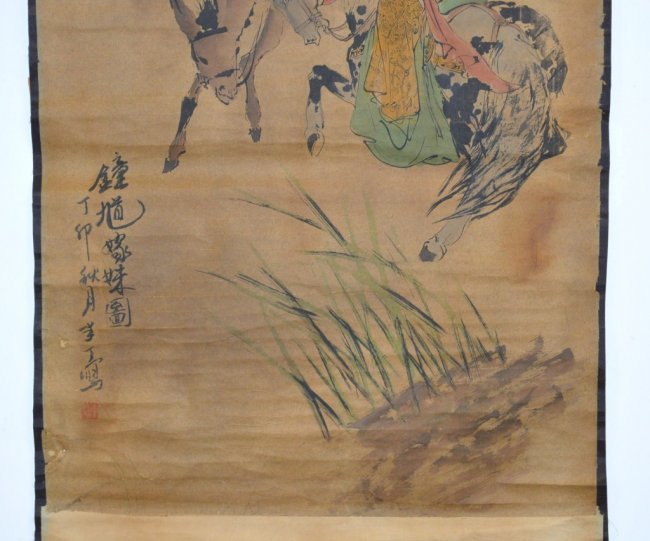 鐘馗嫁妹圖
丁卯秋月